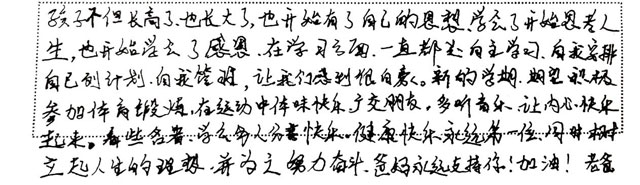 孩子不但长高了.也长大了,也开始有了自己的思想.学会了开始思考人
生,也开始学会了感恩.在学习方面.一直都是自主学习.自我安排
自己列计划.自我管理,让我们感到很自豪。新的学期.期望积极
参加体育锻炼,在运动中体味快乐.广交朋友,多听音乐.让内心快乐
起来。看些名著.学会与人分享快乐。健康快乐永远第一位.同时树
立起人生的理想.并为之努力奋斗.爸妈永远支持你!加油!